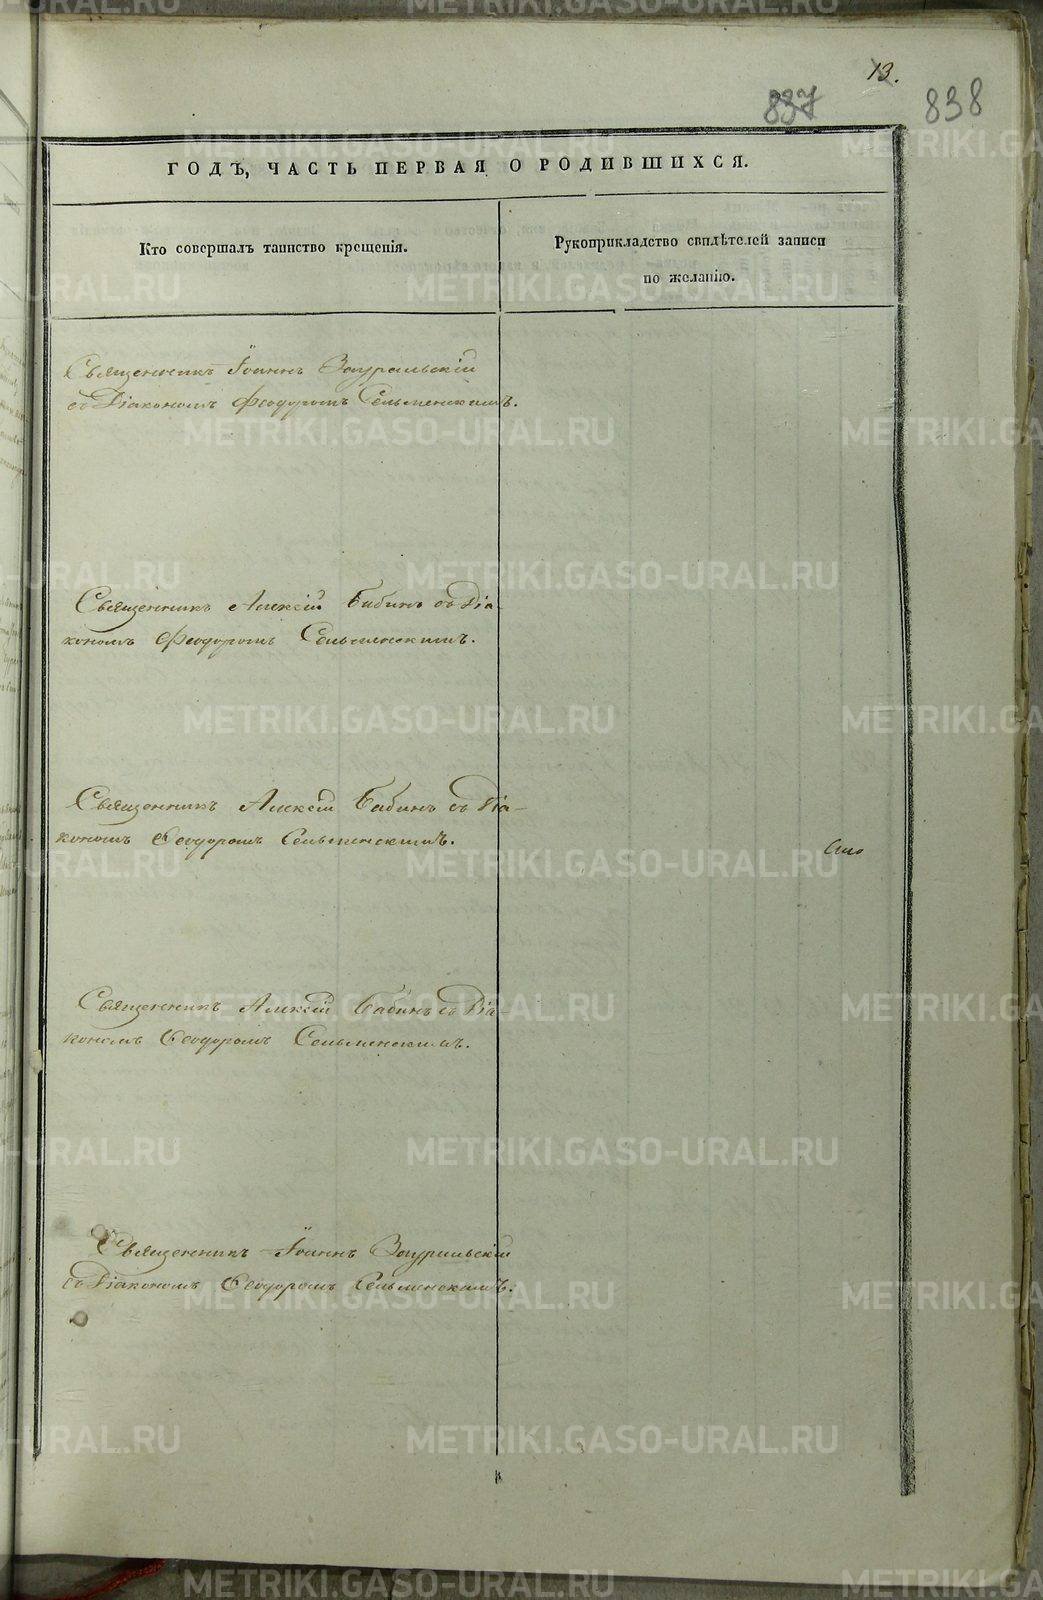 13.
837 838
ГОДЪ, ЧАСТЬ ПЕРВАЯ О РОДИВШИХСЯ.
Кто совершалъ таинство крещенія.
Рукоприкладство свидѣтелей записи
по желанію.
Священникъ Іоаннъ Зауральскій
съ Діакономъ Феодоромъ Сельменскимъ.
Священникъ Алексій Бабинъ съ Діа-
кономъ Феодоромъ Сельменскимъ.
Священникъ Алексій Бабинъ съ Діа-
кономъ Ѳеодоромъ Сельменскимъ.
Священникъ Алексій Бабинъ съ Діа-
кономъ Ѳеодоромъ Сельменскимъ.
Священникъ Іоаннъ Зауральскій
съ Діакономъ Ѳеодоромъ Сельменскимъ.
METRIKI.GASO-URAL.RU